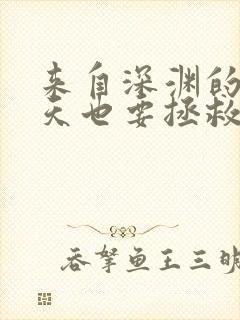 来自深渊的
天也要拯救
吞拏鱼王三明